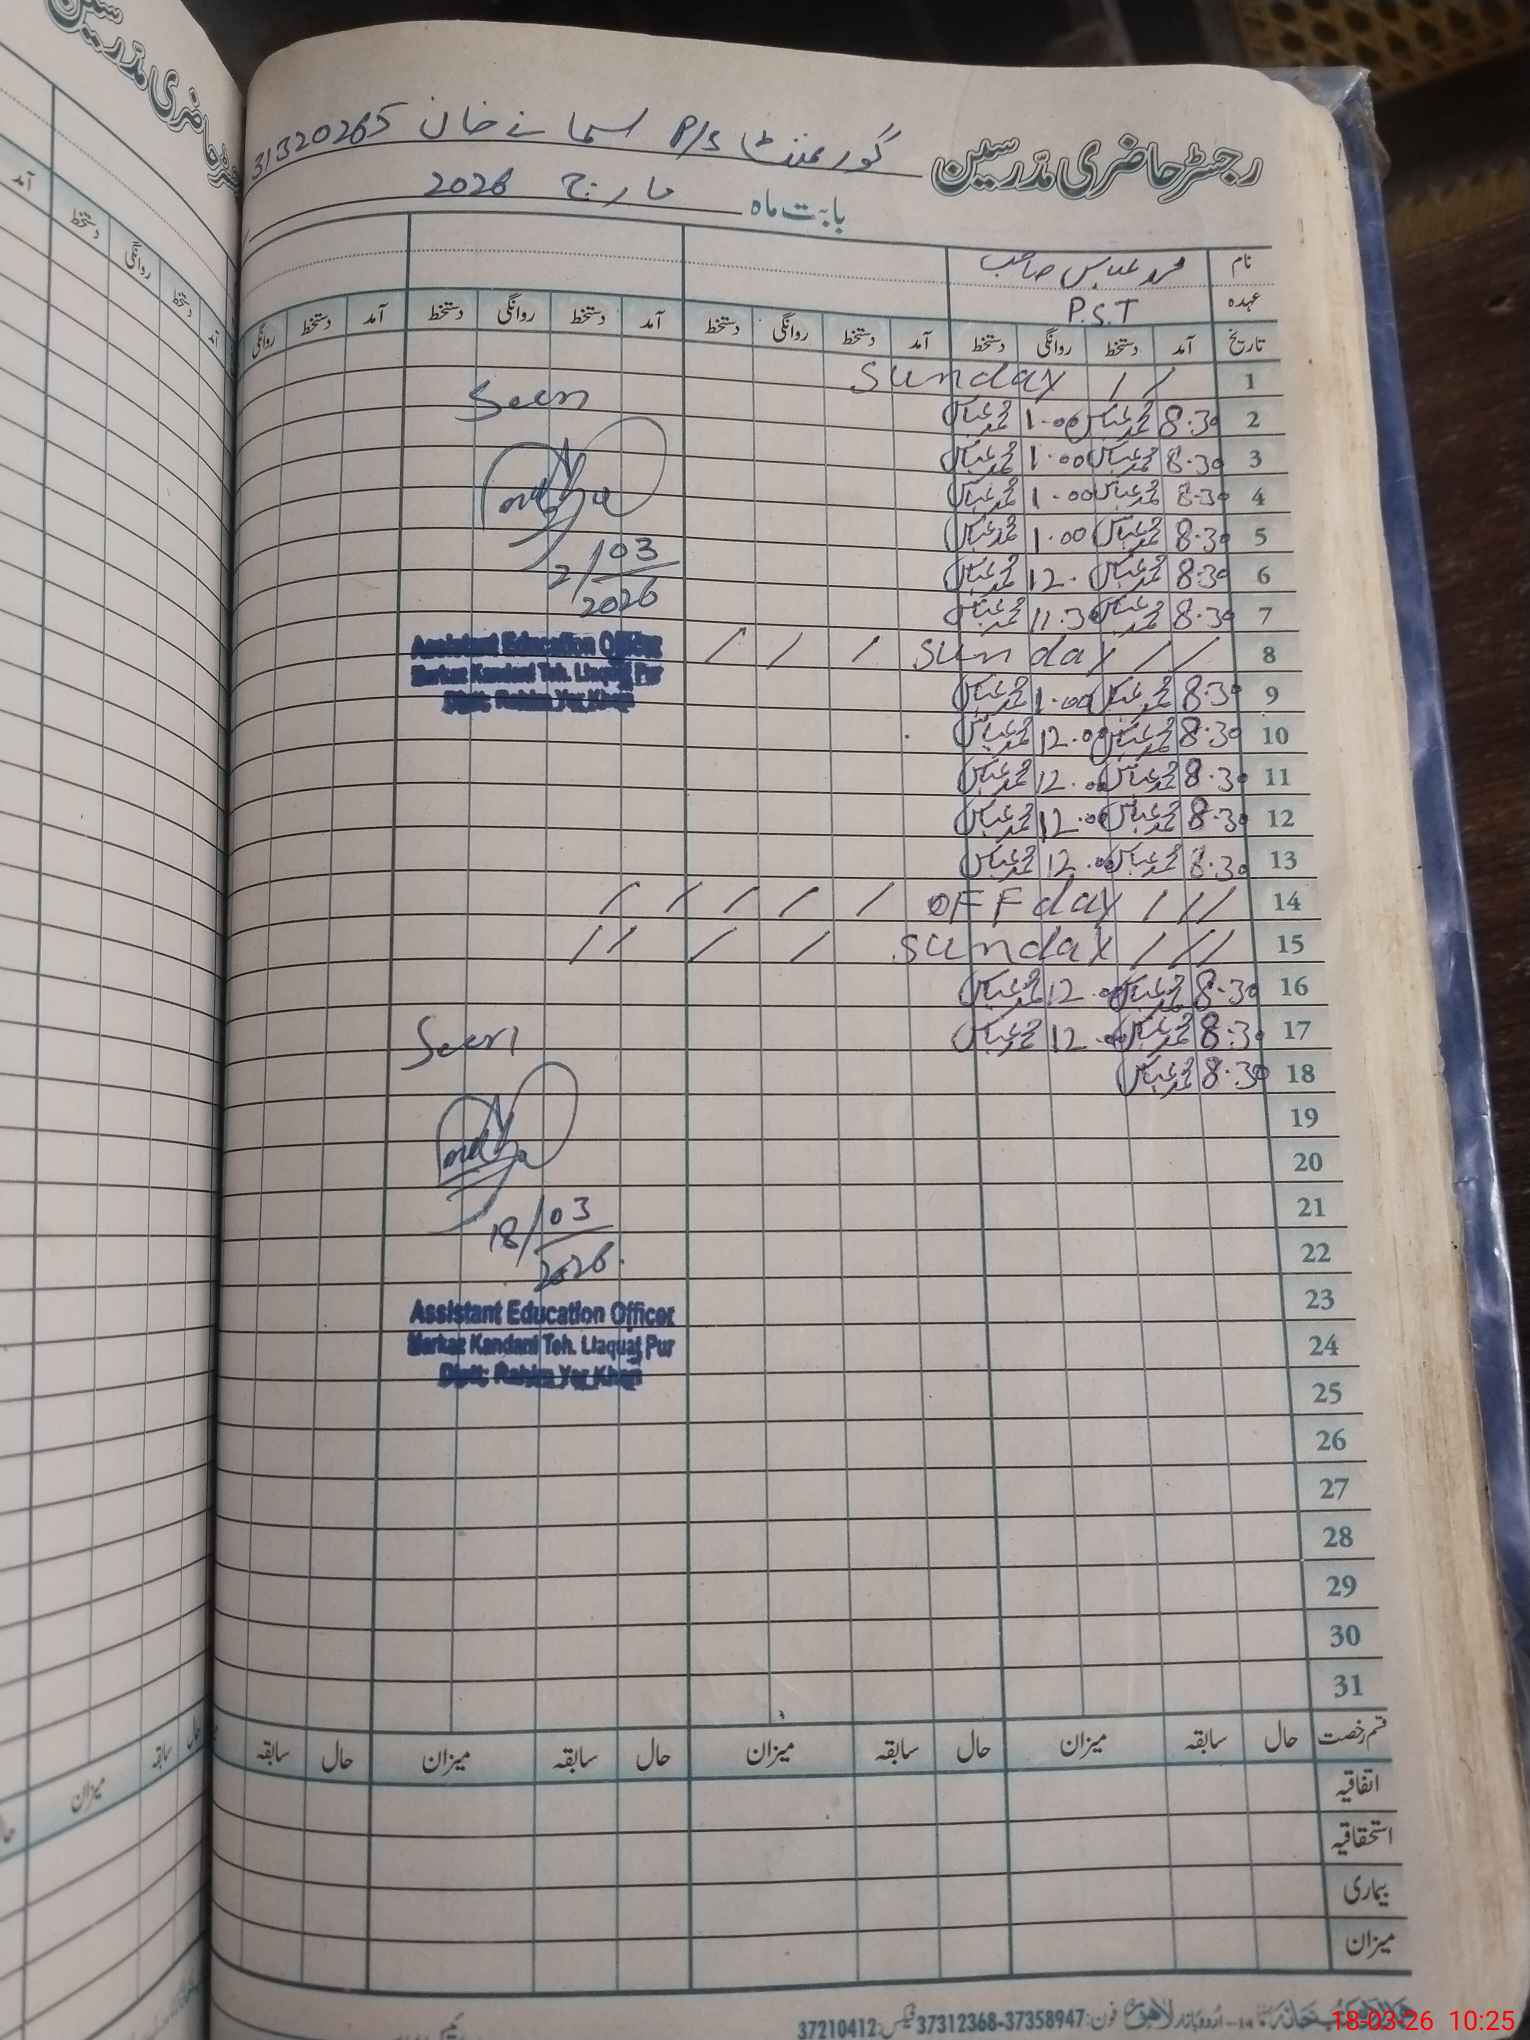 رجسٹر حاضری مدّرسین گورنمنٹ P/S اسمانے خان 31320265
بابت ماہ مارچ 2026
نام محمد عباس صاحب
عہدہ P.S.T
تاریخ آمد دستخط روانگی دستخط آمد دستخط روانگی دستخط آمد دستخط روانگی دستخط آمد دستخط روانگی
1 Sunday
2 8.30 محمد عباس 1.00 محمد عباس
3 8.30 محمد عباس 1.00 محمد عباس
4 8.30 محمد عباس 1.00 محمد عباس
5 8.30 محمد عباس 1.00 محمد عباس
6 8.30 محمد عباس 12. محمد عباس
7 8.30 محمد عباس 11.30 محمد عباس
8 Sunday
9 8.30 محمد عباس 1.00 محمد عباس
10 8.30 محمد عباس 12.00 محمد عباس
11 8.30 محمد عباس 12.00 محمد عباس
12 8.30 محمد عباس 12.00 محمد عباس
13 8.30 محمد عباس 12.00 محمد عباس
14 OFF day
15 Sunday
16 8.30 محمد عباس 12.00 محمد عباس
17 8.30 محمد عباس 12.00 محمد عباس
18 8.30 محمد عباس
19
20
21
22
23
24
25
26
27
28
29
30
31
Seen
2/03
2026
Assistant Education Officer
Markaz Kandani Teh. Liaquat Pur
Distt: Rahim Yar Khan
Seen
18/03
2026.
Assistant Education Officer
Markaz Kandani Teh. Liaquat Pur
Distt: Rahim Yar Khan
قسم رخصت حال سابقہ میزان حال سابقہ میزان حال سابقہ میزان حال سابقہ
اتفاقیہ
استحقاقیہ
بیماری
میزان
اُردو بازار لاہور فون: 37312368-37358947 فیکس: 37210412
18-03-26 10:25